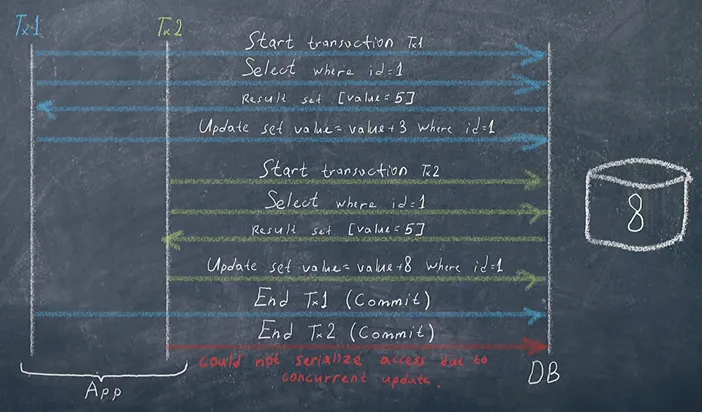 Tx1 Tx2
Start transuction Tx1
Select where id=1
Result set [value=5]
Update set value=value+3 where id=1
Start transuction Tx2
Select where id=1
Result set [value=5]
8
Update set value=value+8 where id=1
End Tx1 (Commit)
End Tx2 (Commit)
could not serialize access due to
concurrent update.
App
DB